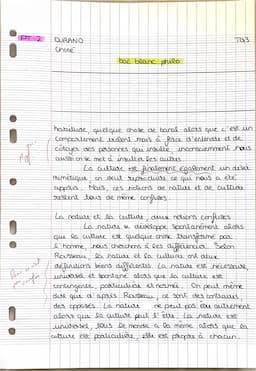 PT 2 DURAND TG3
CASSÉ
bac blanc philo
habitude, quelque chose de banal alors que c'est un
comportement violent mais à force d'entendre et de
côtoyer des personnes qui insulte, inconsciemment nous
aussi on se met à insulter les autres.
La culture est finalement également un délit
numérique, on veut reproduire ce qui nous a été
appris. Mais, ces notions de nature et de culture
restent tous de même confuses.
La nature et la culture, deux notions confuses
La nature se développe spontanément alors
que la culture est quelque chose transformé par
l'homme, nous cherchons à les différencier. Selon
Rousseau, la nature et la culture ont deux
définitions biens différentes. La nature est nécessaire,
universel et spontané alors que la culture est
contingente, particulière et normée. On peut même
dire que d'après Rousseau, ce sont des contraires
des opposés. La nature ne peut pas être autrement
alors que la culture peut l'être. La nature est
universel, tous le monde a la même alors que la
culture est particulière, elle est propre à chacun.